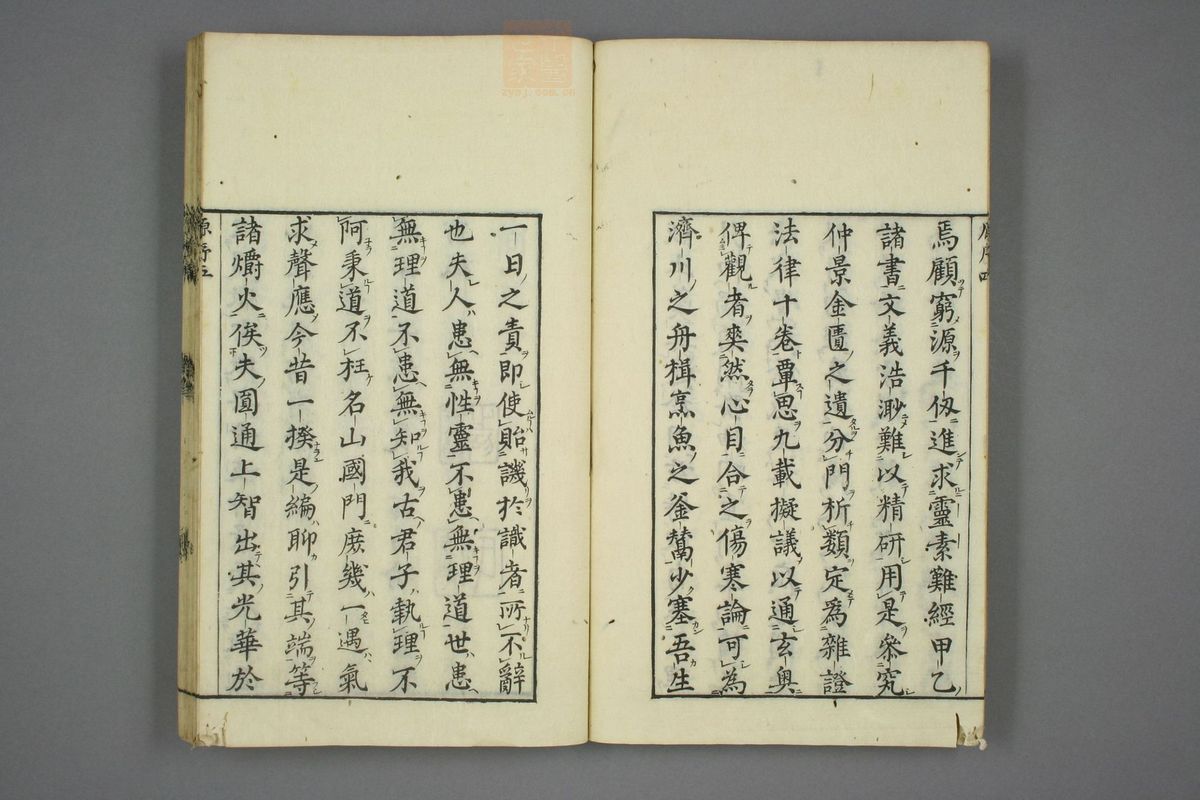 焉顧窮源千仭進求靈素難經甲乙
諸書文義浩渺難以精研用是叅究
仲景金匱之遺分門析類定爲雜證
法律十卷覃思九載擬議以通玄奥
俾觀者爽然心目合之傷寒論可爲
濟川之舟楫烹魚之釜鬵少塞吾生
一日之責即使貽譏於識者所不辭
也夫人患無性靈不患無理道世患
無理道不患無知我古君子執理不
阿秉道不枉名山國門庶幾一遇氣
求聲應今昔一揆是編聊引其端等
諸爝火俟夫圓通上智出其光華於
原序五
zysj.com.cn